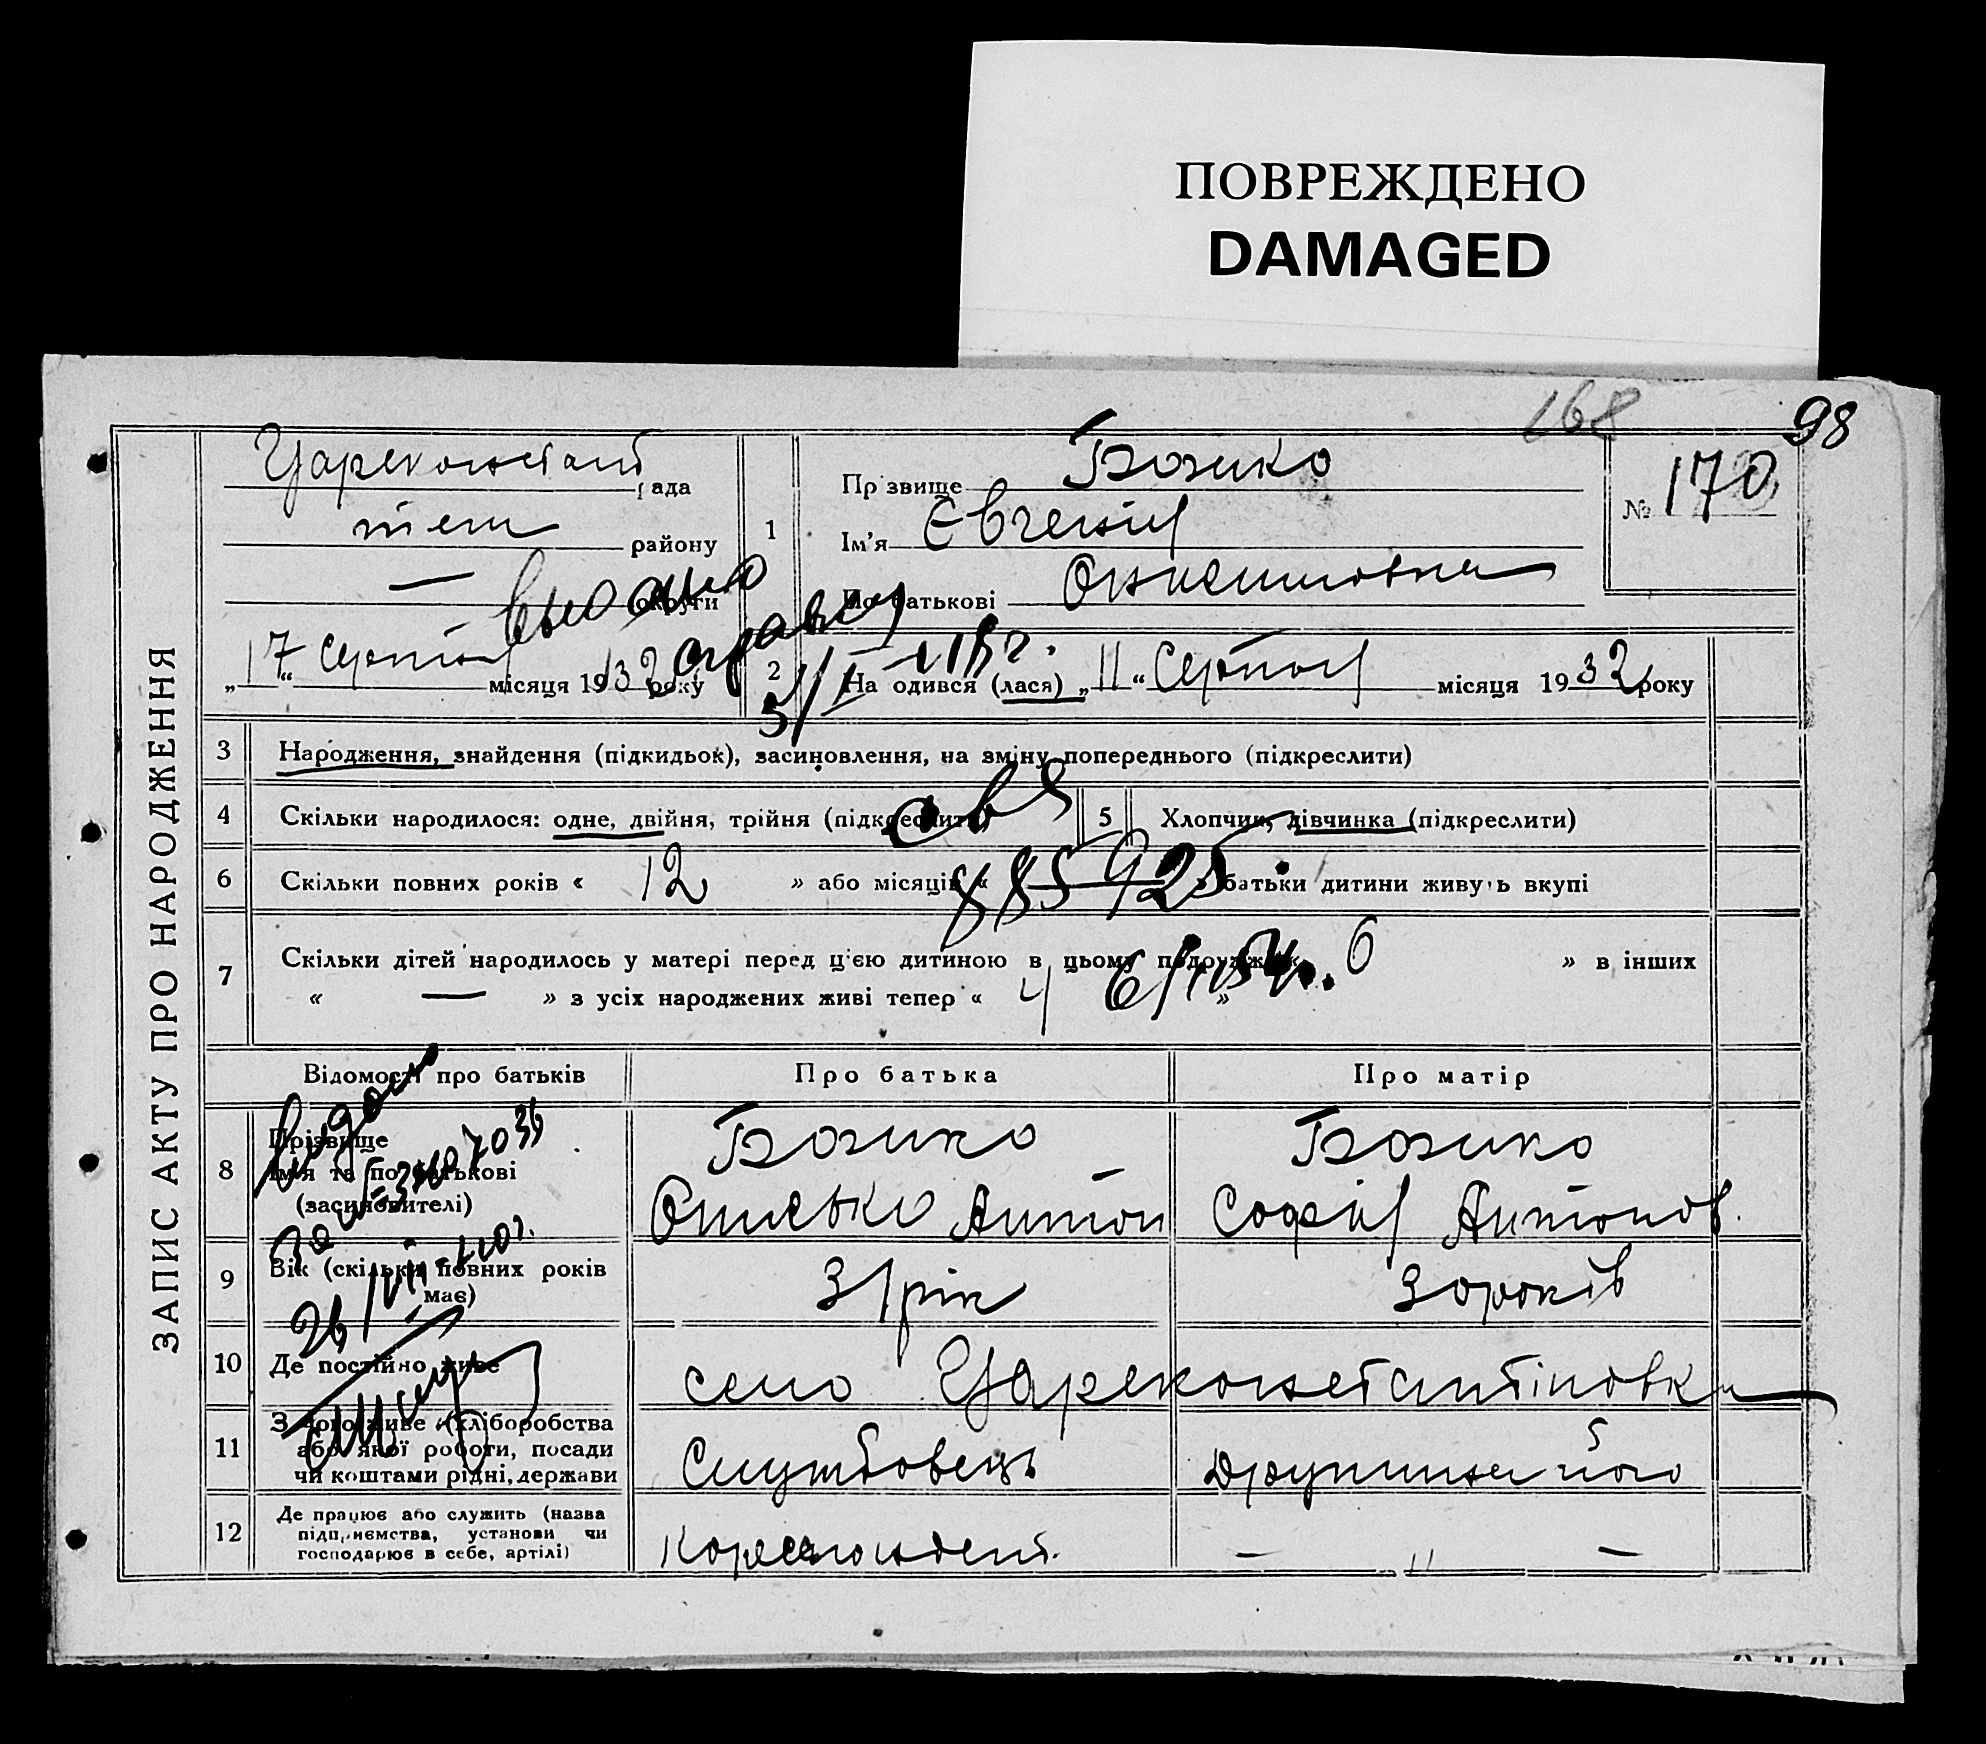 ПОВРЕЖДЕНО
DAMAGED
168
98
ЗАПИС АКТУ ПРО НАРОДЖЕННЯ
Цареконстант
рада
теж району
— округи
„17“ Серпня місяця 1932 року
1
Прізвище Божко
Ім'я Євгенія
По батькові
№ 170
2
На одився (лася) „11“ Серпня місяця 1932 року
3 Народження, знайдення (підкидьок), засиновлення, на зміну попереднього (підкреслити)
4 Скільки народилося: одне, двійня, трійня (підкреслити)
5 Хлопчик, дівчинка (підкреслити)
6 Скільки повних років « 12 » або місяців « — » батьки дитини живуть вкупі
885925
7 Скільки дітей народилось у матері перед ц'єю дитиною в цьому подружжі « 6 » в інших
« — » з усіх народжених живі тепер « 4 »
Відомості про батьків
Про батька
Про матір
8 Прізвище
Ім'я та по батькові
(засиновителі)
Божко
Антон
Божко
Софія Антонов.
9 Вік (скільки повних років
має)
31 рік
30 років
10 Де постійно живе
село Цареконстантіновка
11 З чого живе (хліборобства
або якої роботи, посади
чи коштами рідні, держави
Службовець
Дружина його
12 Де працює або служить (назва
підприємства, установи чи
господарює в себе, артілі)
Кореспондент.
— " —